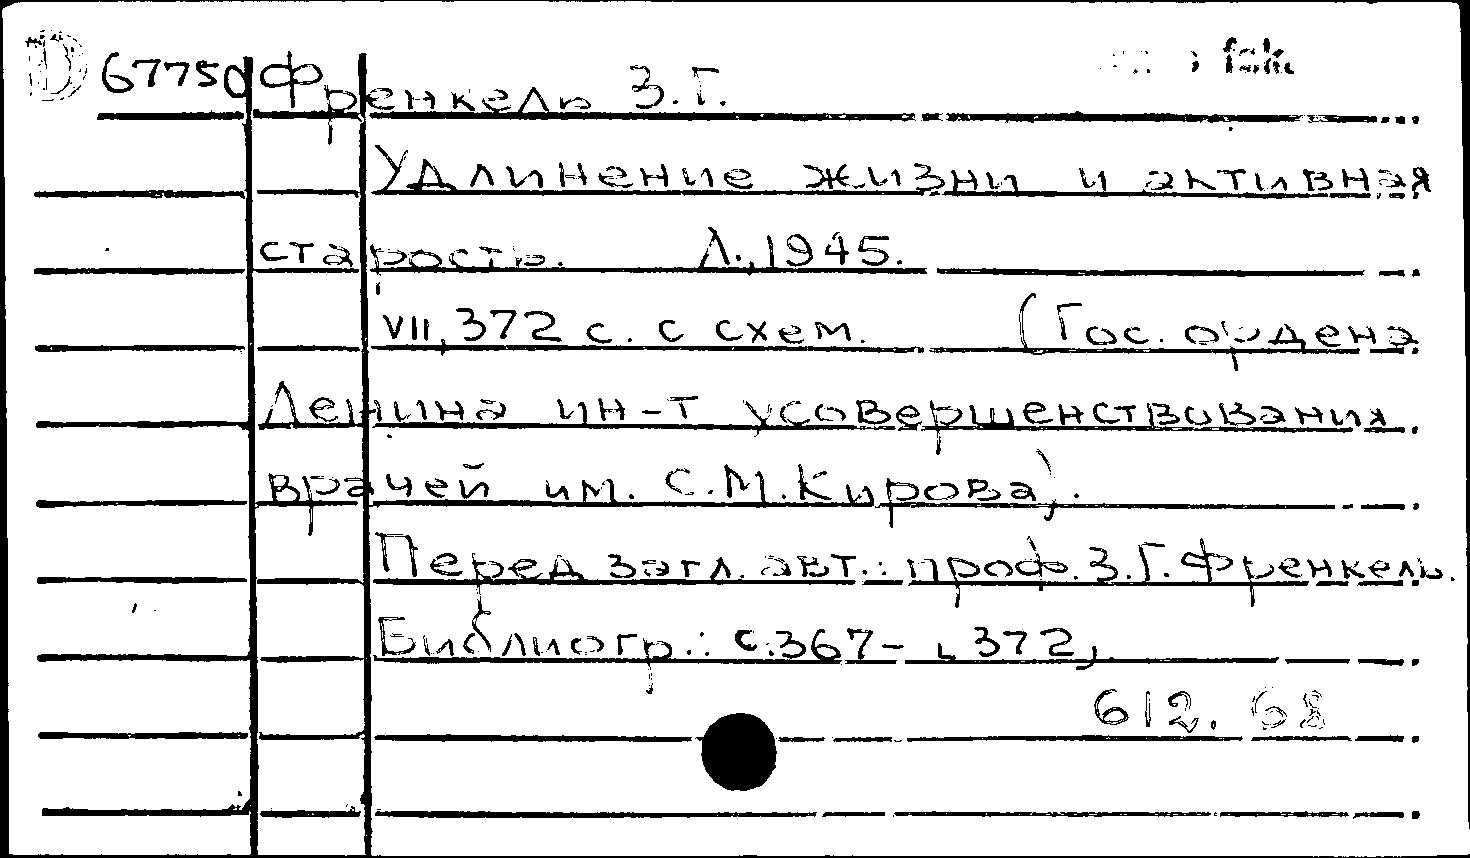 D 67750 Френкель З.Г.
Удлинение жизни и активная
старость. Л., 1945.
VII, 372 с. с схем. (Гос. ордена
Ленина ин-т усовершенствования
врачей им. С.М.Кирова).
Перед загл. авт.: проф. З.Г. Френкель.
Библиогр.: с.367-372,
612.68